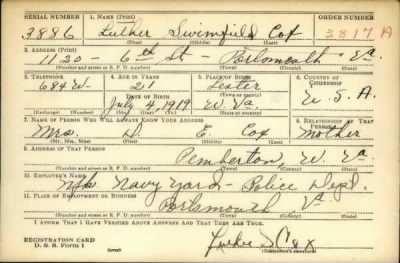 SERIAL NUMBER 1. NAME (Print)
3886 Luther Swinfield Cox 3817 A
(First) (Middle) (Last)
2. ADDRESS (Print)
1120 - 6th St - Portsmouth Va.
(Number and street or R. F. D. number) (Town) (County) (State)
3. TELEPHONE 4. AGE IN YEARS 5. PLACE OF BIRTH 6. COUNTRY OF CITIZENSHIP
684 W- 21 Lester
DATE OF BIRTH
July 4, 1919 W. Va. U. S. A.
(Mo.) (Day) (Yr.) (State or country)
7. NAME OF PERSON WHO WILL ALWAYS KNOW YOUR ADDRESS 8. RELATIONSHIP OF THAT PERSON
Mrs. E. Cox Mother
(Mr., Mrs., Miss) (First) (Middle) (Last)
9. ADDRESS OF THAT PERSON
Pemberton, W. Va.
(Number and street or R. F. D. number) (Town) (County) (State)
10. EMPLOYER'S NAME
Nfk Navy Yard - Police Dept.
11. PLACE OF EMPLOYMENT OR BUSINESS
Portsmouth Va
(Number and street or R. F. D. number) (Town) (County) (State)
I AFFIRM THAT I HAVE VERIFIED ABOVE ANSWERS AND THAT THEY ARE TRUE.
REGISTRATION CARD
D. S. S. Form 1 (over) Luther S Cox
(Registrant's signature)